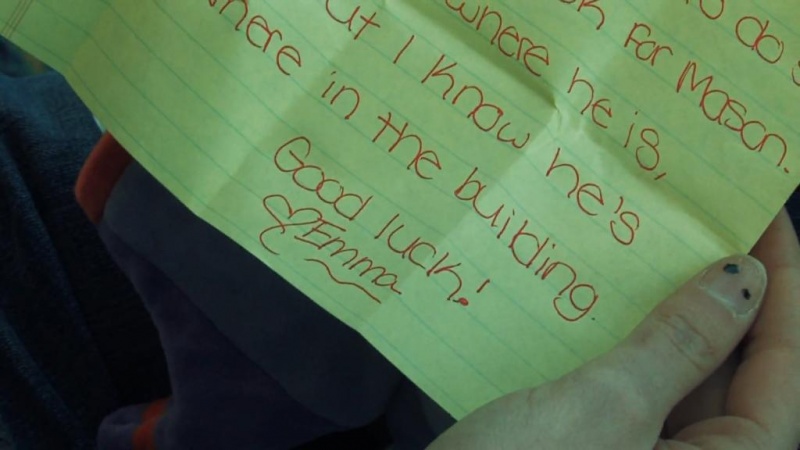 to do s
k for Mason.
where he is,
ut I know he's
where in the building.
Good luck!
Emma